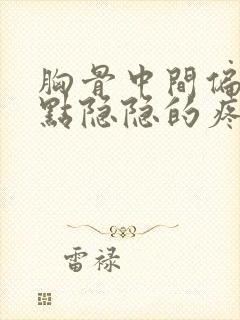 胸骨中間偏
點隐隐的疼
雷禄